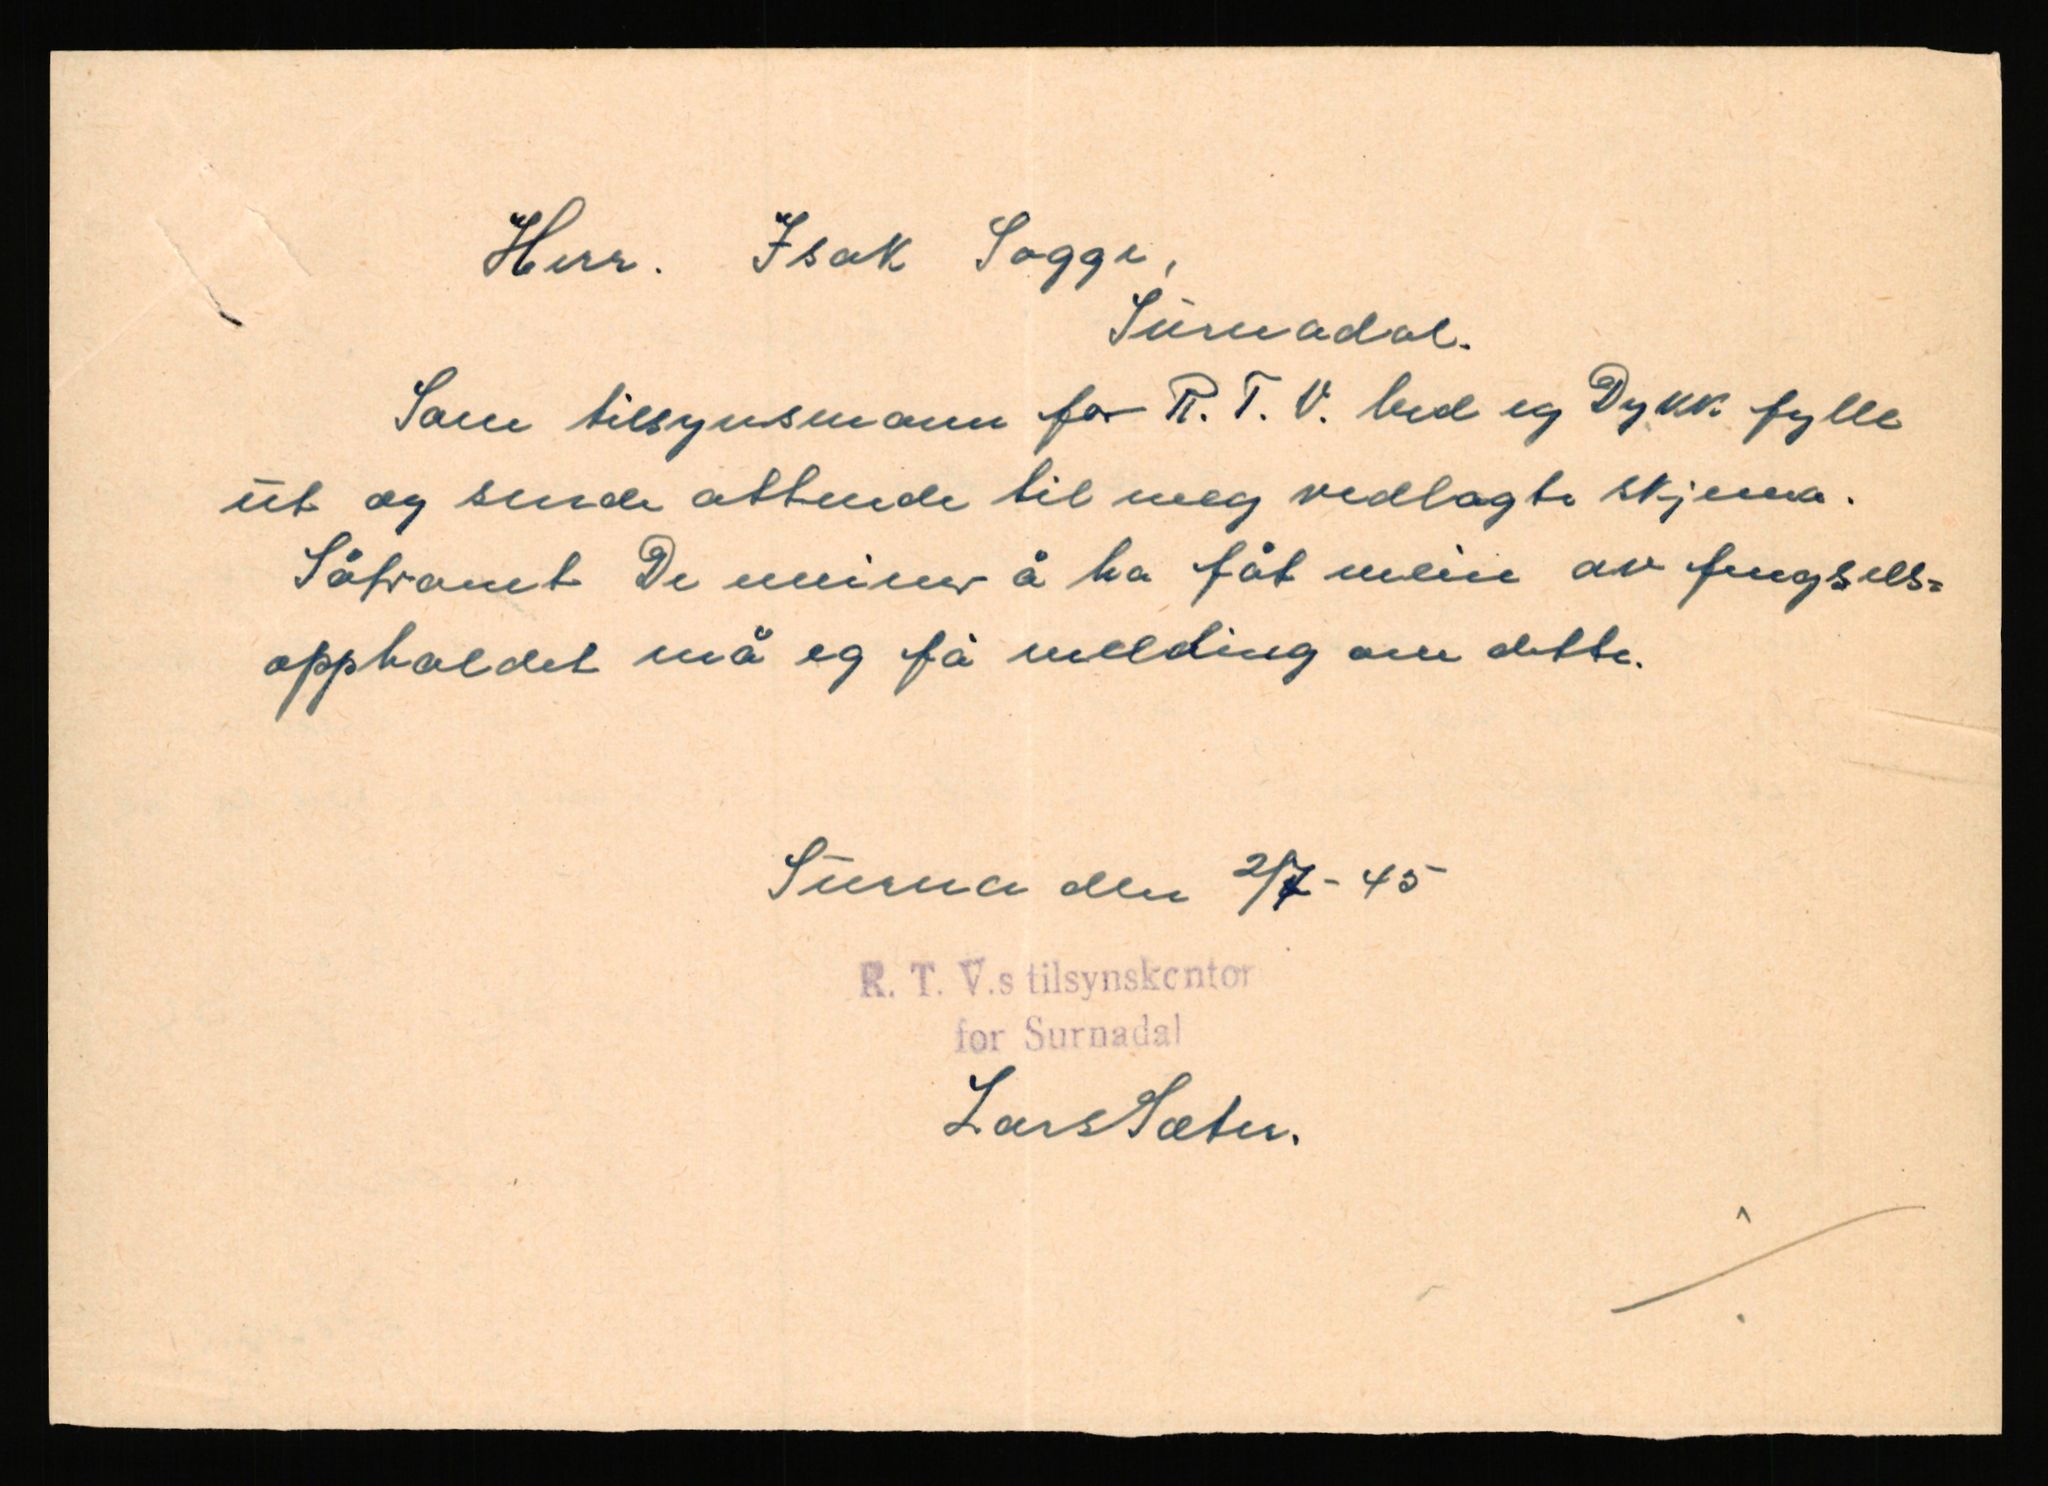 Herr. Isak Sogge,
Surnadal.
Som tilsynsmann for R. T. V. bed eg Dykk fylle
ut og sende attende til meg vedlagte skjema.
Såframt De meiner å ha fåt mein av fengsels=
oppholdet må eg få melding om dette.
Surna den 2/7 - 45
R. T. V.s tilsynskontor
for Surnadal
Lars Sæter.